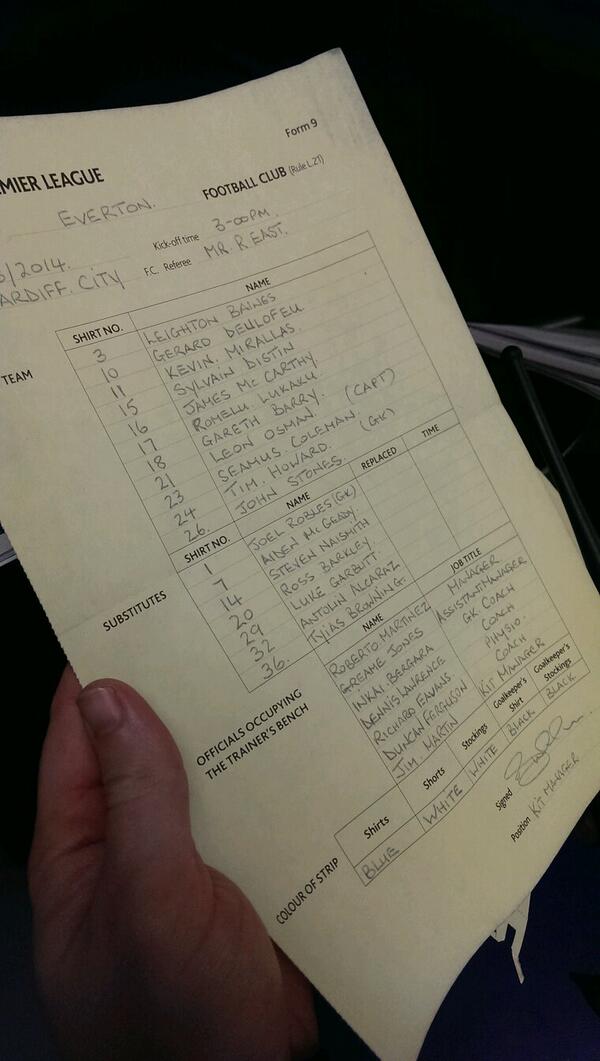 Form 9
MIER LEAGUE
EVERTON. FOOTBALL CLUB (Rule L.27)
/2014. Kick-off time 3-00PM.
ARDIFF. CITY F.C. Referee MR. R. EAST.
TEAM
SHIRT NO. NAME
3 LEIGHTON BAINES
10 GERARD DEULOFEU
11 KEVIN. MIRALLAS.
15 SYLVAIN DISTIN
16 JAMES MC CARTHY
17 ROMELU LUKAKU
18 GARETH BARRY.
21 LEON OSMAN. (CAPT)
23 SEAMUS COLEMAN.
24 TIM. HOWARD. (GK)
26. JOHN STONES.
SUBSTITUTES
SHIRT NO. NAME REPLACED TIME
1 JOEL ROBLES (GK)
7 AIDEN MCGEADY
14 STEVEN NAISMITH
20 ROSS BARKLEY
29 LUKE GARBUTT.
32 ANTOLIN ALCARAZ
36. TYIAS BROWNING.
OFFICIALS OCCUPYING
THE TRAINER'S BENCH
NAME JOB TITLE
ROBERTO MARTINEZ MANAGER
GREAME JONES ASSISTANT MANAGER
INKAI. BERGARA GK COACH
DENNIS LAWRENCE COACH
RICHARD EAVANS PHYSIO.
DUNCAN FERGUSON COACH
JIM. MARTIN KIT MANAGER
COLOUR OF STRIP
Shirts Shorts Stockings Goalkeeper's Shirt Goalkeeper's Stockings
BLUE WHITE WHITE BLACK BLACK
Signed
Position KIT MANAGER